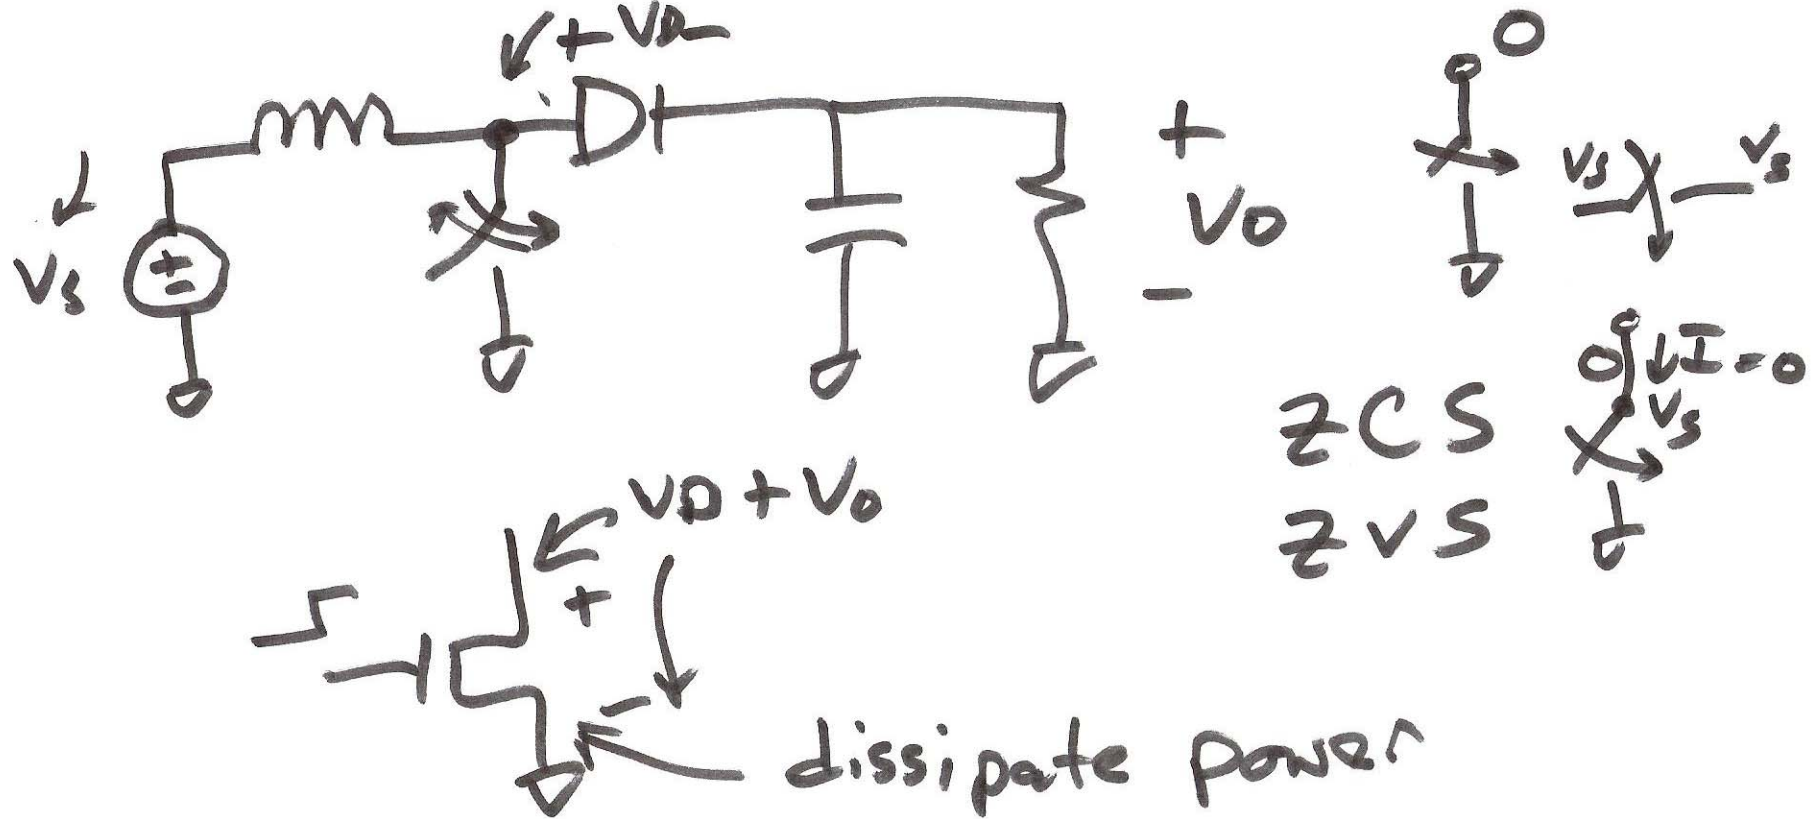 + VD -
VS
+
-
+
VO
-
O
VS
VS
O I = O
VS
ZCS
ZVS
VD + VO
+
-
dissipate power